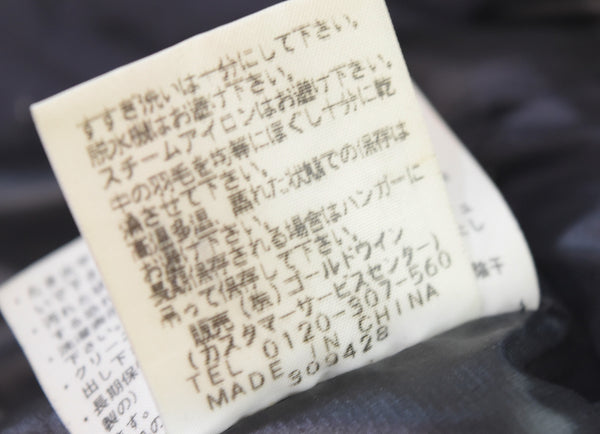 すすぎ洗いは十分にして下さい。
脱水機はお避け下さい。
スチームアイロンはお避け下さい。
中の羽毛を均等にほぐし十分に乾
燥させて下さい。
高温多湿、濡れた状態での保存は
お避け下さい。
長期保存される場合はハンガーに
吊って保存して下さい。
販売 (株)ゴールドウイン
(カスタマーサービスセンター)
TEL 0120-307-560
MADE IN CHINA
309428
下さい
・クリーニ
出し下
・長期保
製の)
す。
陰干